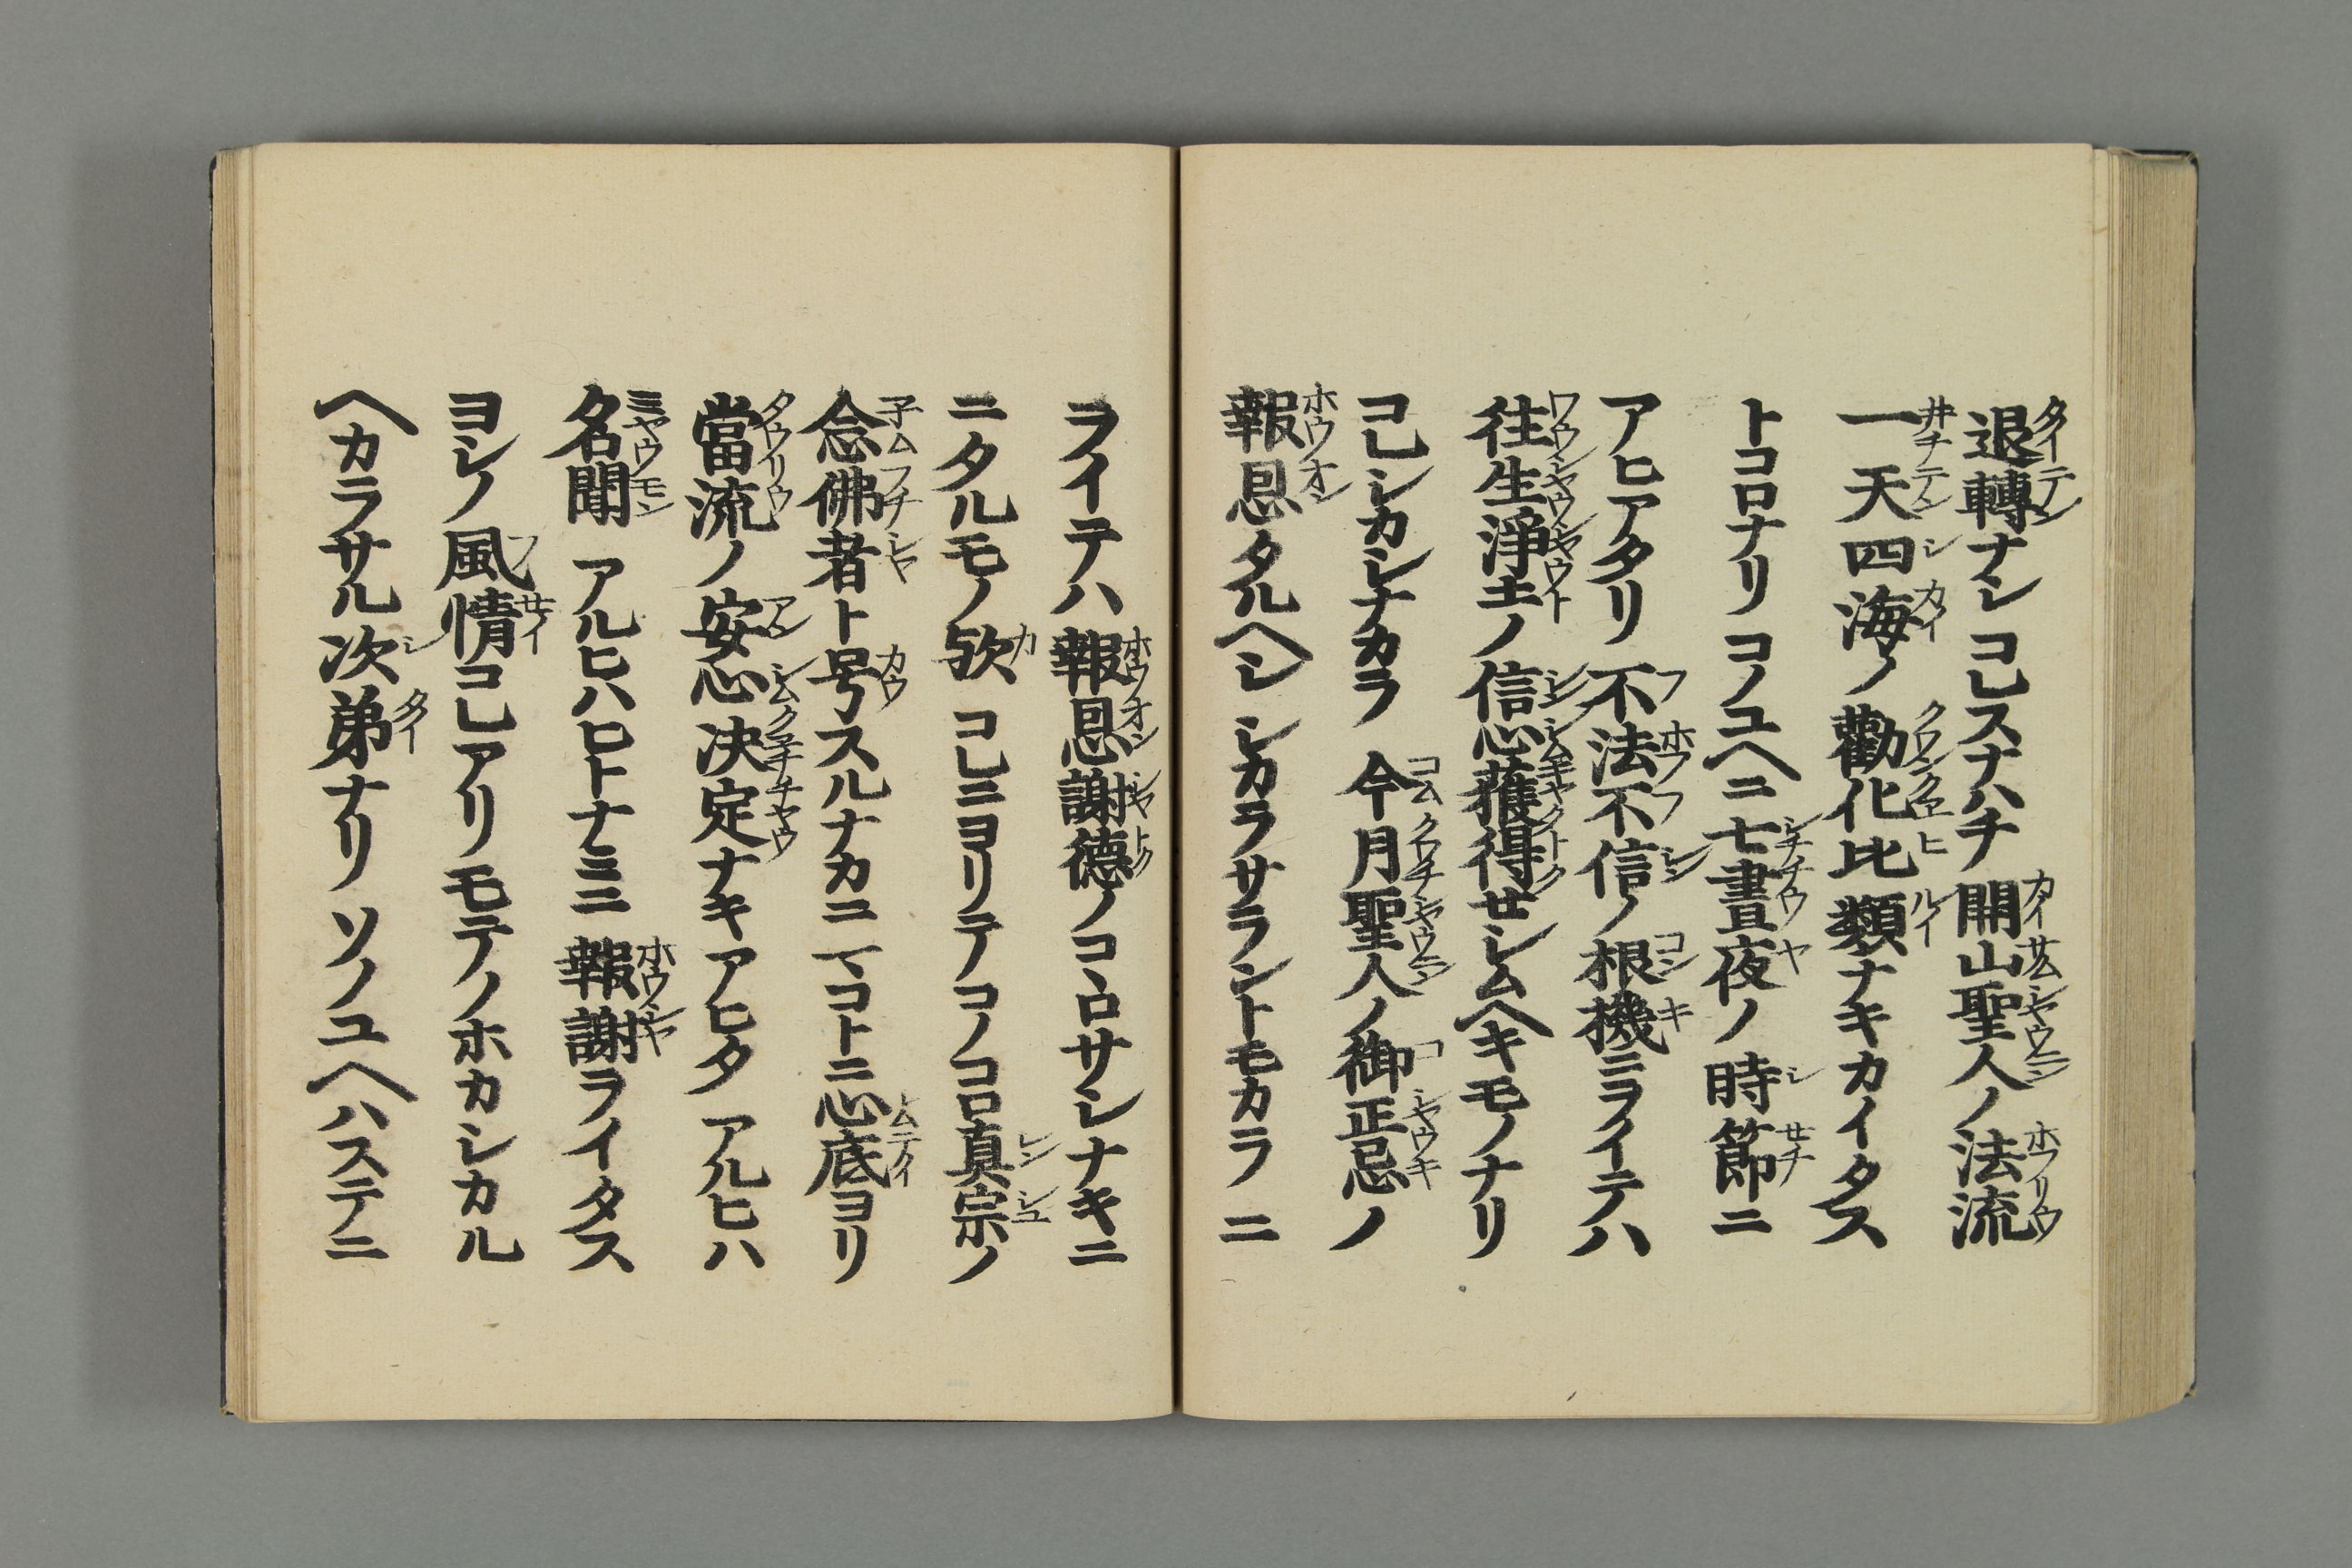 退轉ナシコレスナハチ開山聖人ノ法流
一天四海ノ勸化比類ナキカイタス
トコロナリコノユヘニ七晝夜ノ時節ニ
アヒアタリ不法不信ノ根機ニヲイテハ
往生淨土ノ信心獲得せシムヘキモノナリ
コレシカシナカラ今月聖人ノ御正忌ノ
報恩タルヘシシカラサラントモカラニ
ヲイテハ報恩謝德ノコヽロサシナキニ
ニタルモノ歟コレニヨリテコノコロ真宗ノ
念佛者ト号スルナカニマコトニ心底ヨリ
當流ノ安心决定ナキアヒタアルヒハ
名聞アルヒハヒトナミニ報謝ヲイタス
ヨシノ風情コレアリモテノホカシカル
ヘカラサル次弟ナリソノユヘハステニ